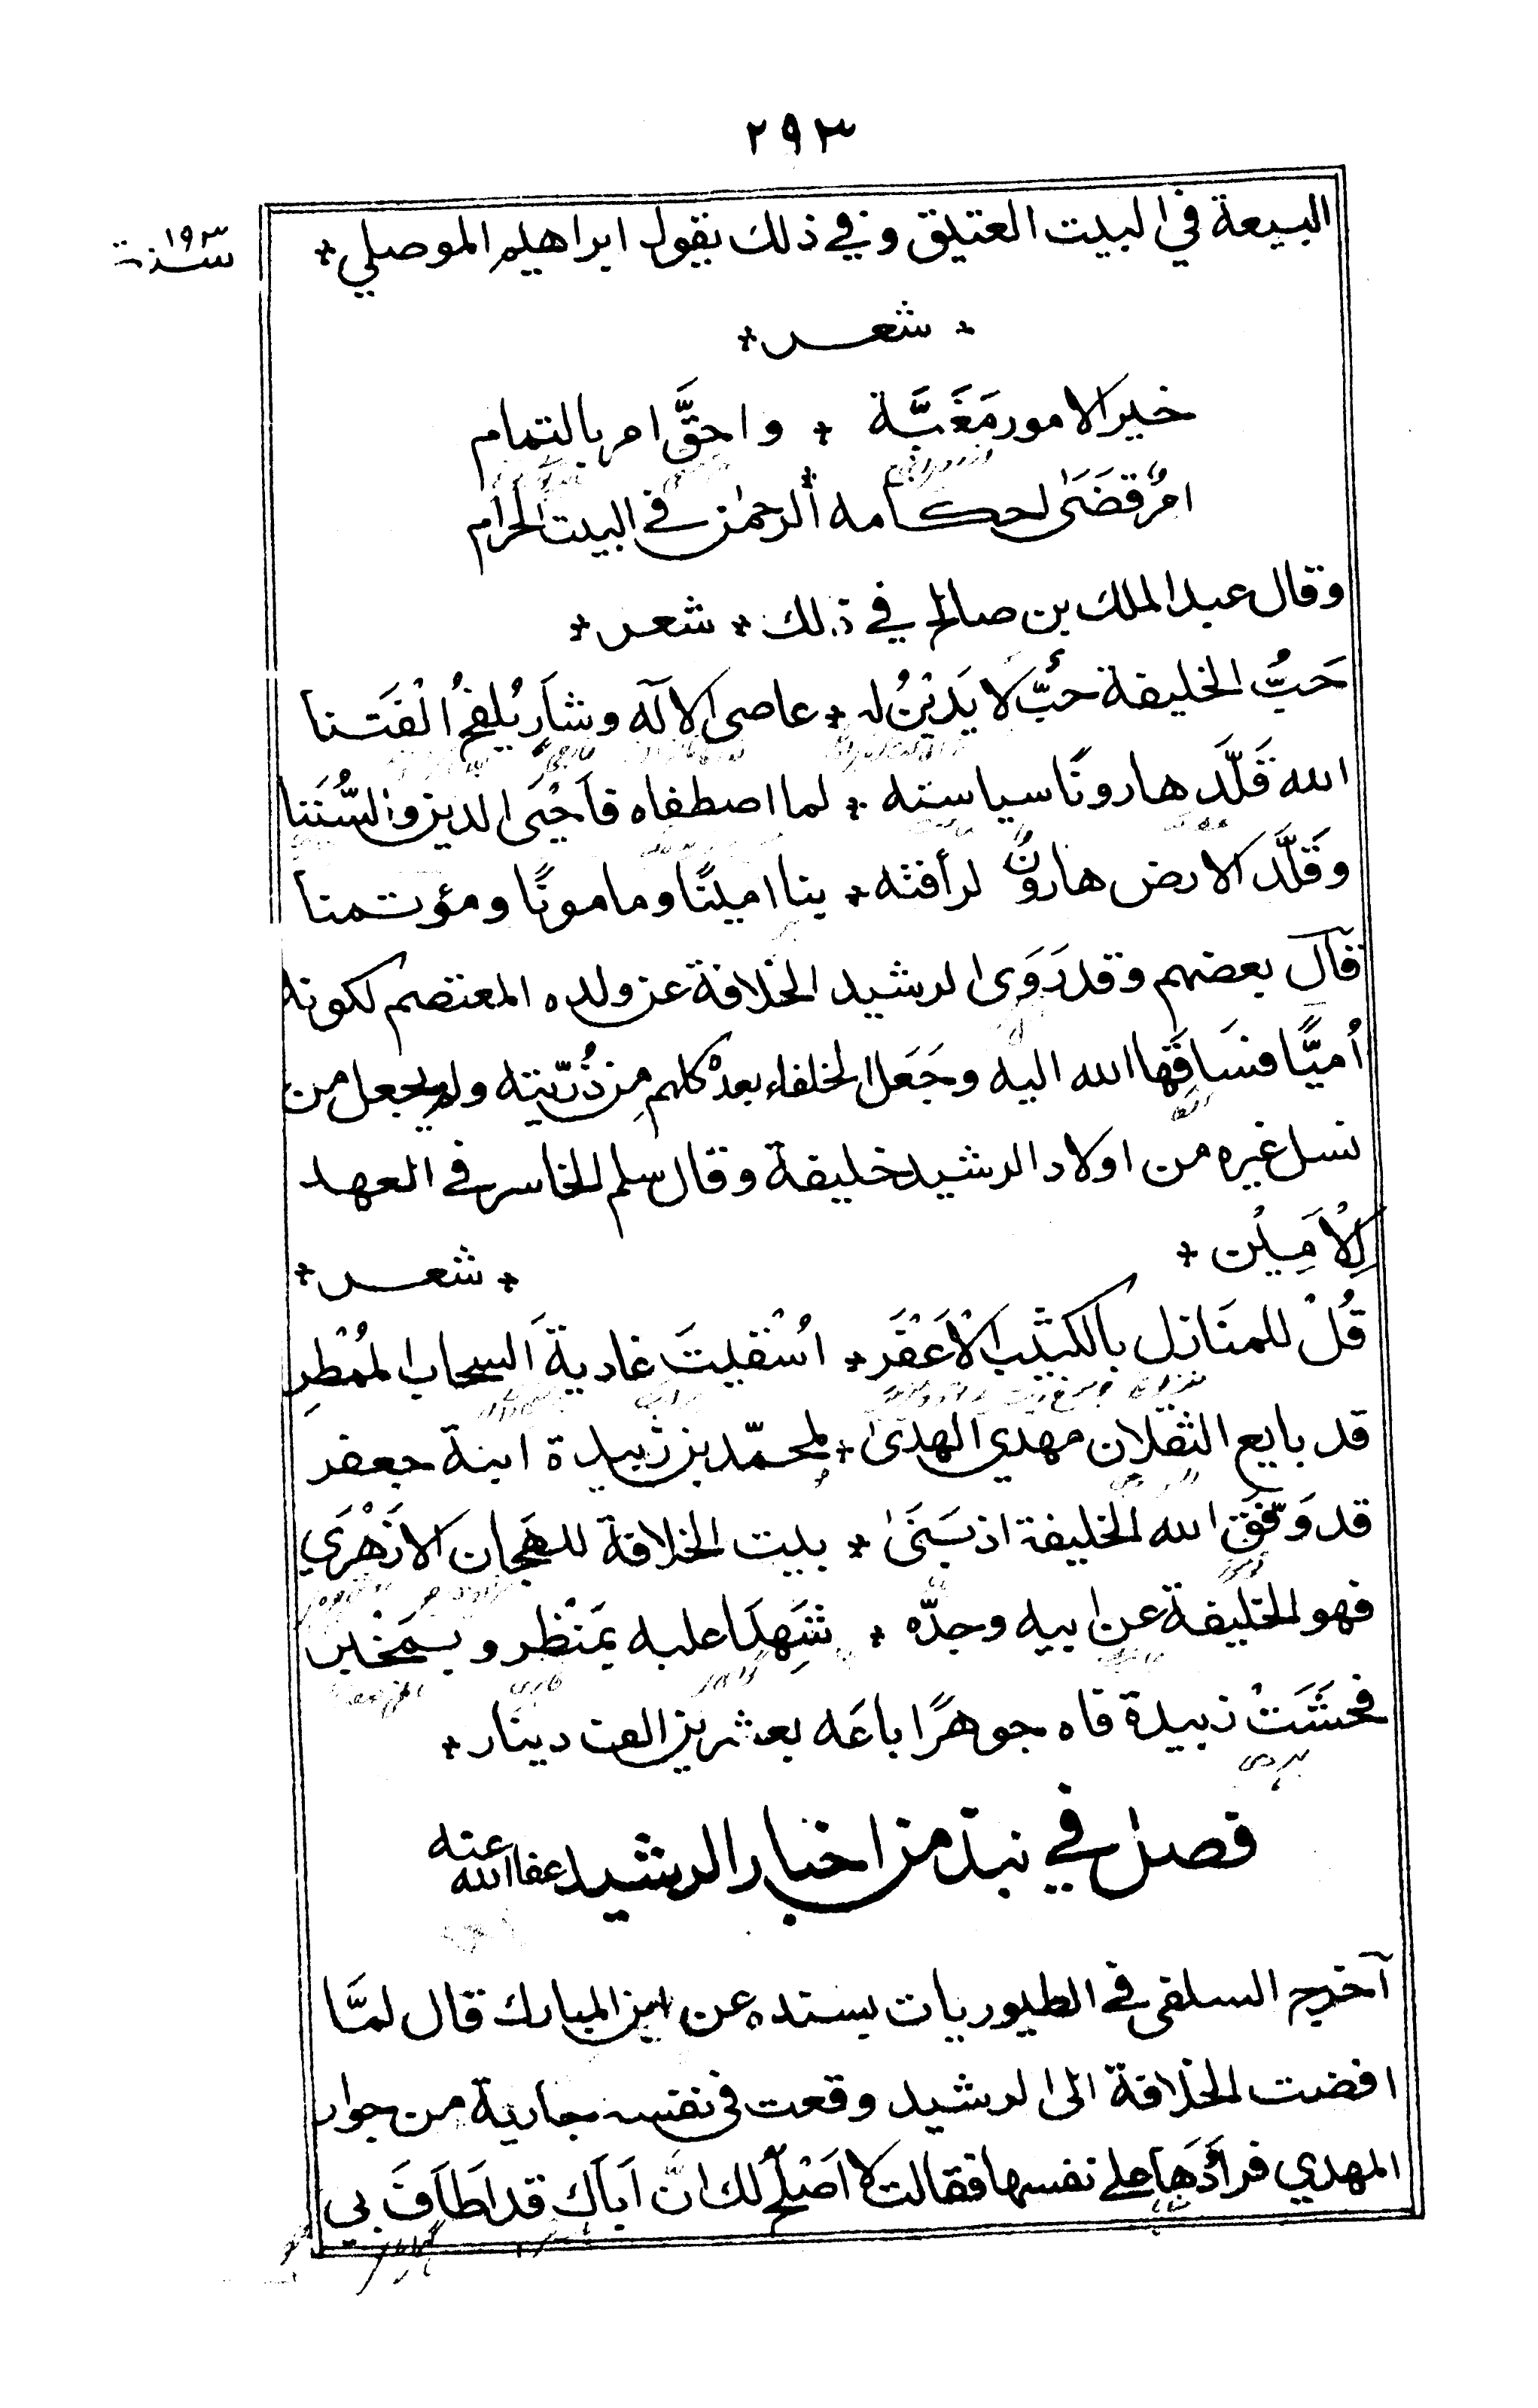 ٢٩٣
سنة ١٩٣
البيعة في البيت العتيق وفي ذلك يقول ابراهيم الموصلي *
* شعر *
خير الامور مَغَبَّة * واحقَّ امر بالتمام
امرٌ قضَىٰ احكامه الرحمٰن في البيت الحرام
وقال عبد الملك بن صالح في ذلك * شعر *
حَبُّ الخليفة حُبٌّ لا يَدِيْنُ له * عاصى الاله وشارٍ يُلقحُ الْفَتَنا
الله قَلَّدَ هارونًا سياسته * لما اصطفاه فاَحْيَى الدين والسُّنَنا
وقَلَّدَ الارض هارونُ لرأفته * بنا امينًا ومامونًا ومؤتمنا
قال بعضهم وقد زَوَى الرشيد الخلافة عن ولده المعتصم لكونه
اُميًّا فسَاقَها الله اليه وجَعَل الخلفاء بعدهُ كلهم مِن ذُرّيته ولم يجعل من
نسل غيره من اولاد الرشيد خليفة وقال سلم الخاسر في العهد
لِلْاَمِيْن *
* شعر *
قُلْ للمنَازل بالكثيب الْاَعْفَر * اسْقيتَ غادية السحاب المُمْطِرِ
قد بايع الثقلان مهدي الهدىٰ * لمحمّد بن زبيدة ابنة جعفر
قد وَفّقَ الله الخليفة اذ بَنَىٰ * بيت الخلافة للهَجان الازْهَرَي
فهو الخليفة عن ابيه وجدّه * شَهِدَا عليه بمَنْظر وبمَخْبر
فحشَتْ زبيدة فاه جوهرًا باعَه بعشرين الف دينار *
فصل في نبذ من اخبار الرشيد عفا الله عنه
آخرج السلفى في الطيوريات بسنده عن ابن المبارك قال لمَّا
افضت الخلافة الى الرشيد وقعت في نفسه جارية من جوار
المهدي فراوَدَها على نفسها فقالت لا اَصْلُحُ لك انَّ اَباَك قد اَطَاَفَ بي